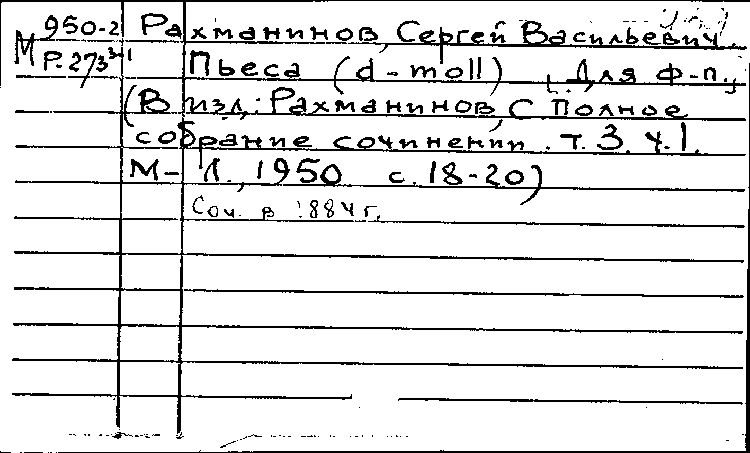 950-2 Рахманинов, Сергей Васильевич.
М Р.273 3-1 Пьеса (d-moll) [Для ф-п.]
(В изд.: Рахманинов, С Полное
собрание сочинений. т. 3. ч. 1.
М-Л., 1950 с. 18-20)
Соч. в 1884 г.